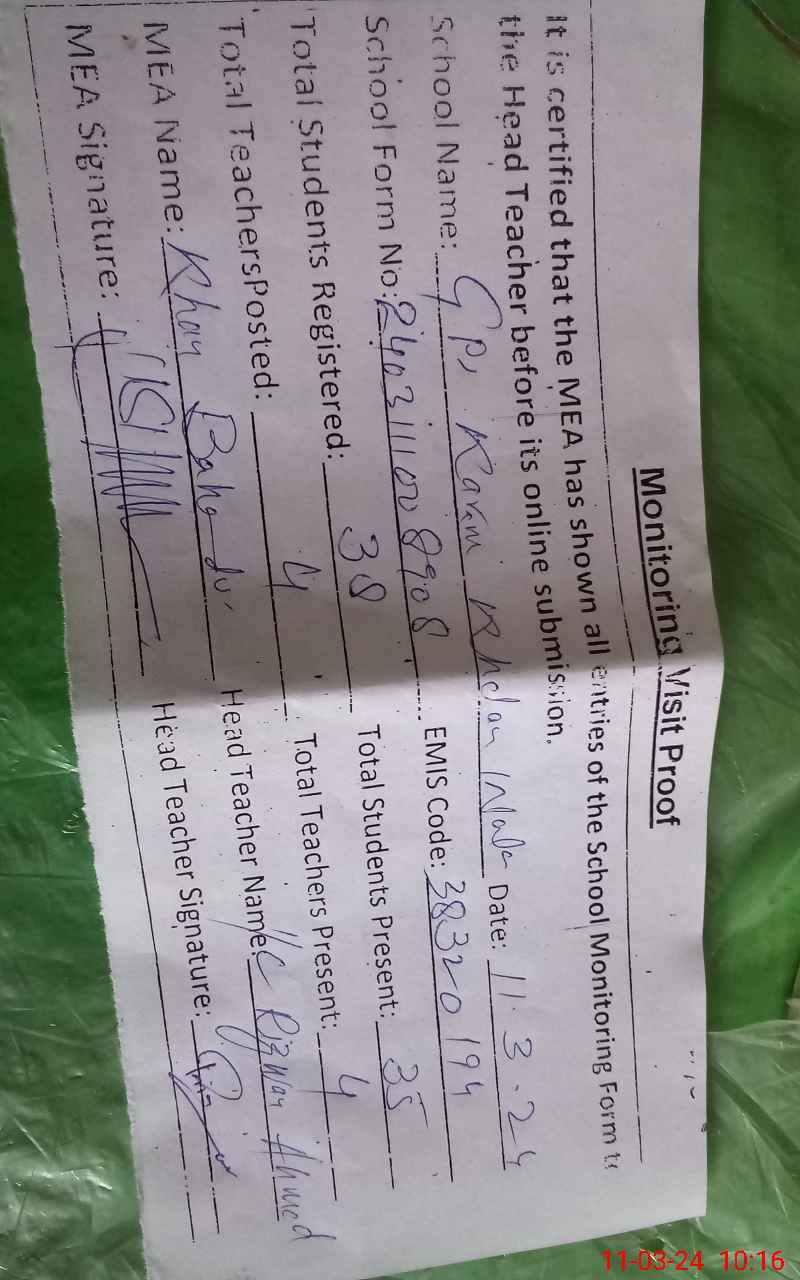 Monitoring Visit Proof
It is certified that the MEA has shown all entries of the School Monitoring Form to
the Head Teacher before its online submission.
School Name: GPS Karim Khelan Wala Date: 11.3.24
School Form No: 2403111008908 EMIS Code: 38320194
Total Students Registered: 38 Total Students Present: 35
Total TeachersPosted: 4 Total Teachers Present: 4
MEA Name: Khan Bahadur Head Teacher Name: Rizwan Ahmed
MEA Signature: Head Teacher Signature:
11-03-24 10:16